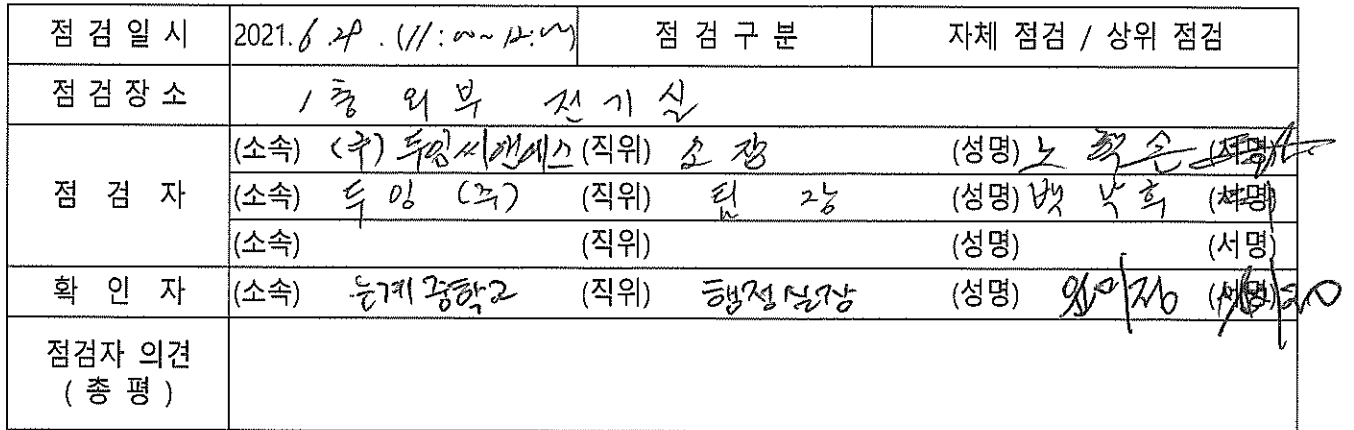 점 검 일 시 2021. 6. 29. (11:00~12:00) 점 검 구 분 자체 점검 / 상위 점검
점 검 장 소 1층 외부 전기실
(소속) (주)두잉씨앤에스 (직위) 소장 (성명) 노 (서명)
점 검 자 (소속) 두잉(주) (직위) 팀장 (성명) 백 (서명)
(소속) (직위) (성명) (서명)
확 인 자 (소속) 은계중학교 (직위) 행정실장 (성명) (서명)
점검자 의견
( 총 평 )